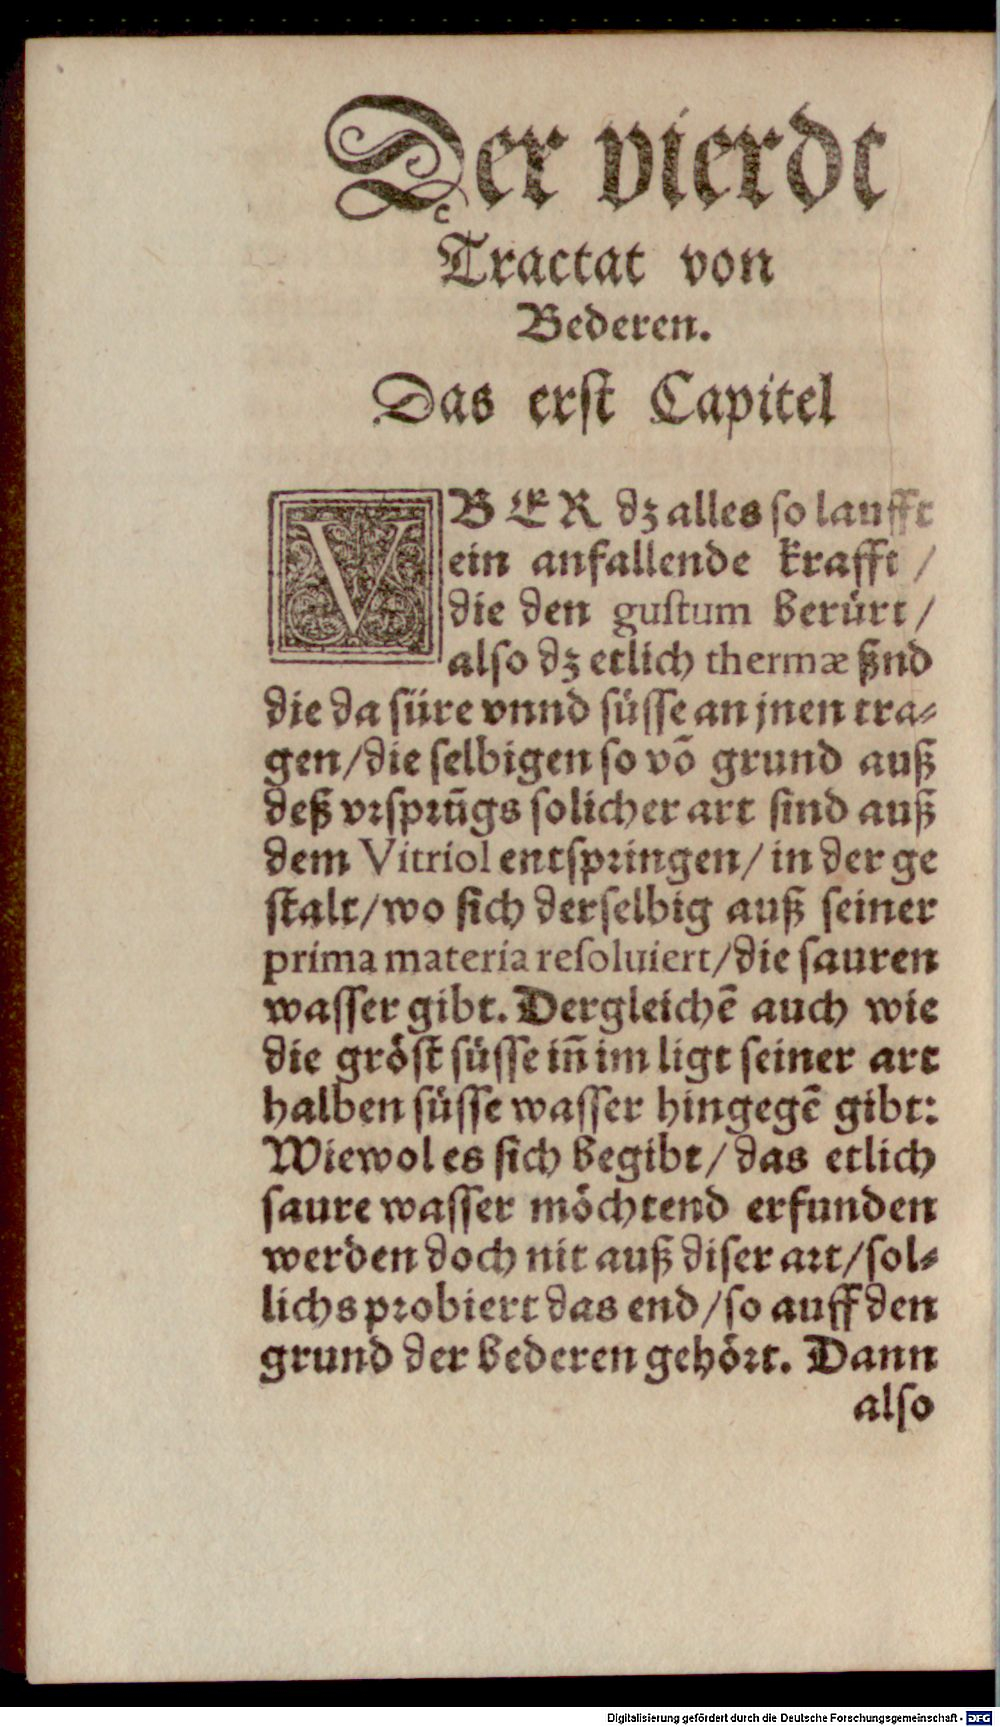 Der vierdt
Tractat von
Bederen.
Das erst Capitel
VBER dz alles so laufft
ein anfallende krafft /
die den gustum berürt /
also dz etlich thermæ sind
die da süre vnnd süsse an jnen tra⸗
gen / die selbigen so võ grund auß
deß vrsprũgs solicher art sind auß
dem Vitriol entspringen / in der ge
stalt / wo sich derselbig auß seiner
prima materia resoluiert / die sauren
wasser gibt. Dergleichẽ auch wie
die gröst süsse iñ im ligt seiner art
halben süsse wasser hingegẽ gibt:
Wiewol es sich begibt / das etlich
saure wasser möchtend erfunden
werden doch nit auß diser art / sol⸗
lichs probiert das end / so auff den
grund der bederen gehört. Dann
also
Digitalisierung gefördert durch die Deutsche Forschungsgemeinschaft - DFG